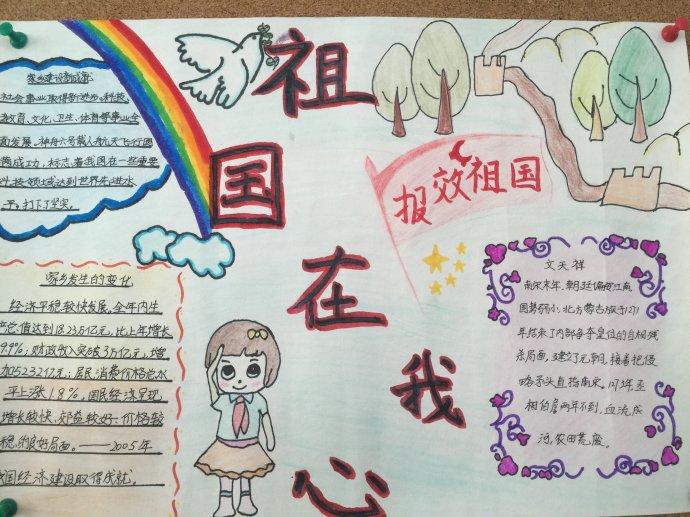 祖
国
在
我
心
报效祖国
家乡建设新成就
社会事业取得新进步。科技、
教育、文化、卫生、体育等事业全
面发展。神舟六号载人航天飞行圆
满成功，标志着我国在一些重要
科技领域达到世界先进水
平，打下了坚实。
家乡发生的变化
经济平稳较快发展。全年内生
产总值达到18.23万亿元，比上年增长
9.9%；财政收入突破3万亿元，增
加5232亿元；居民消费价格总水
平上涨1.8%。国民经济呈现
增长较快、效益较好、价格较
稳的良好局面。——2005年
我国经济建设取得成就。
文天祥
南宋末年，朝廷偏安江南，
国势弱小，北方蒙古族于1271
年结束了内部争夺皇位的自相残
杀局面，建立了元朝，接着把侵
略矛头直指南宋。1273年，丞
相伯颜两年不到，血流成
河，农田荒废。